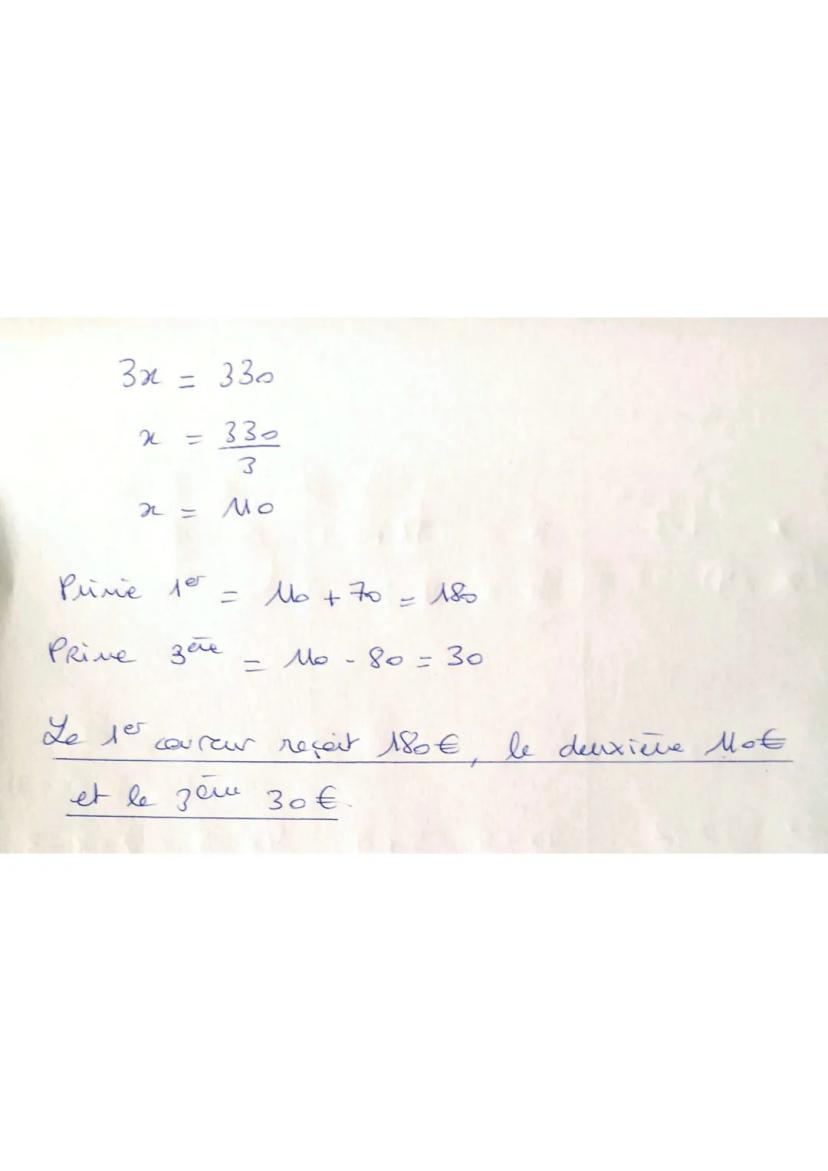 3x = 330
x = 330/3
x = 110
Prime 1er = 110 + 70 = 180
PRime 3ème = 110 - 80 = 30
Le 1er coureur reçoit 180€, le deuxième 110€
et le 3ème 30€.